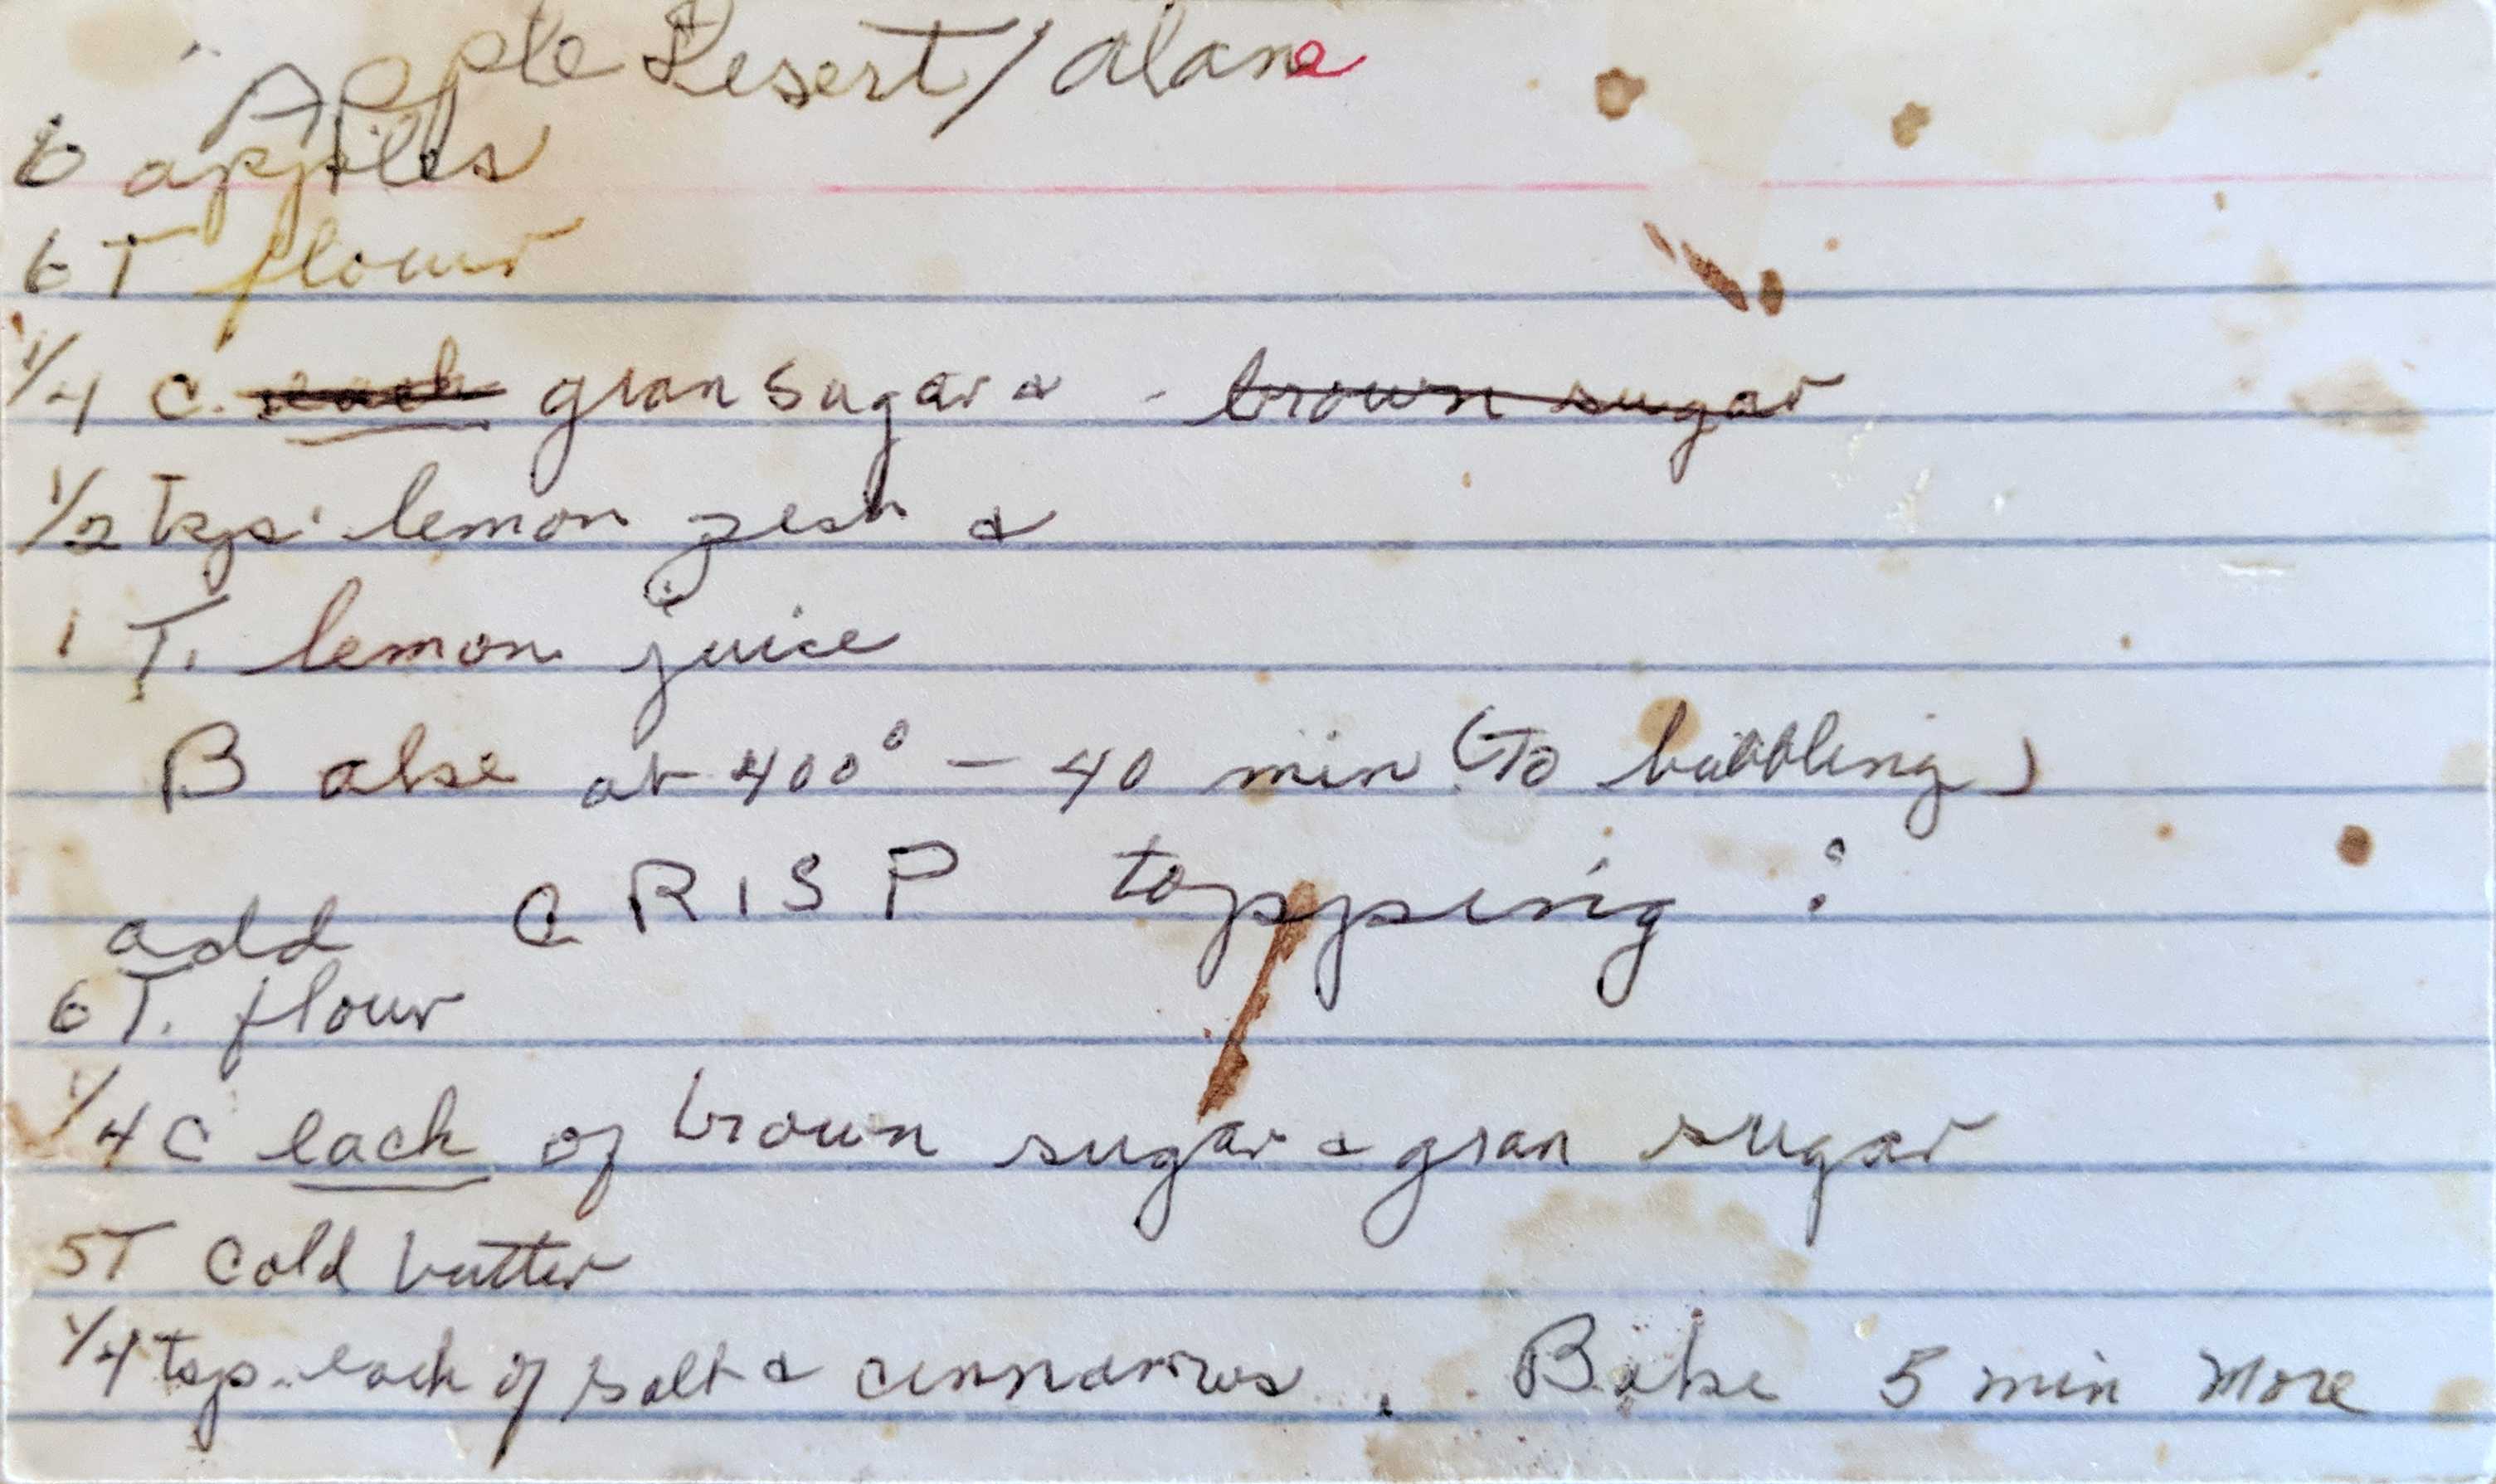 Apple Desert / Alane
6 apples
6 T flour
1/4 c. each gran sugar & - brown sugar
1/2 tsp. lemon zest &
1 T. lemon juice
Bake at 400° - 40 min (To bubbling)
add CRISP topping :
6 T. flour
1/4 C each of brown sugar & gran sugar
5T Cold butter
1/4 tsp. each of salt & cinnamon. Bake 5 min More